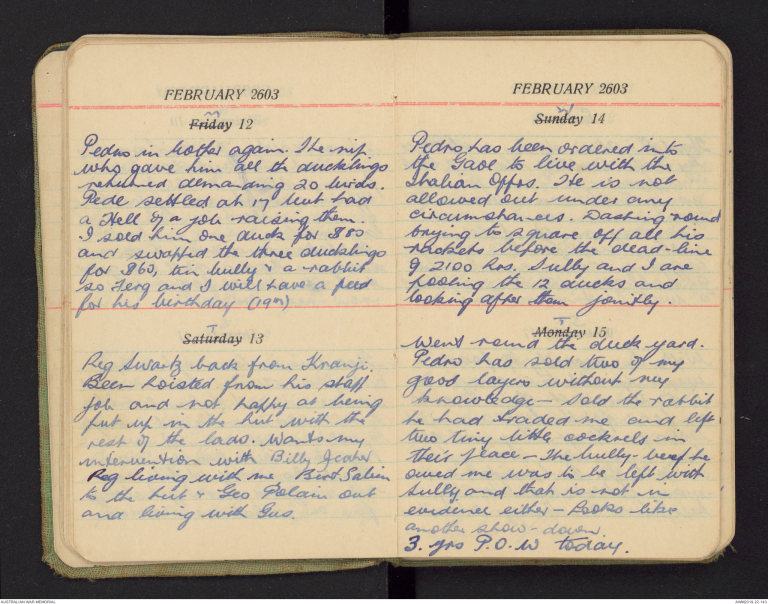 FEBRUARY 2603
Friday 12
Pedro in bother again. The nip
who gave him all th ducklings
returned demanding 20 birds.
Pede settled at 17 but had
a Hell of a job raising them.
I sold him one duck for $80
and swapped the three ducklings
for $60, tin bully & a rabbit
so Ferg and I will have a feed
for his birthday (19th)
Saturday 13
Reg Swartz back from Kranji.
Been hoisted from his staff
job and not happy at being
put up in the hut with the
rest of the lads. Wants my
intervention with Billy
Reg living with me Bert
to the hut & Geo Polain out
and living with Gus.
FEBRUARY 2603
Sunday 14
Pedro has been ordered into
the Gaol to live with the
Italian Offrs. He is not
allowed out under any
circumstances. Dashing round
trying to square off all his
rackets before the dead-line
of 2100 hrs. Sully and I are
pooling the 12 ducks and
looking after them jointly.
Monday 15
Went round the duck yard.
Pedro has sold two of my
good layers without my
knowledge - Sold the rabbit
he had traded me and left
two tiny little cockrels in
their place - The bully-beef he
owed me was to be left with
Sully and that is not in
evidence either - Looks like
another show-down.
3. yrs P.O.W today.
AUSTRALIAN WAR MEMORIAL